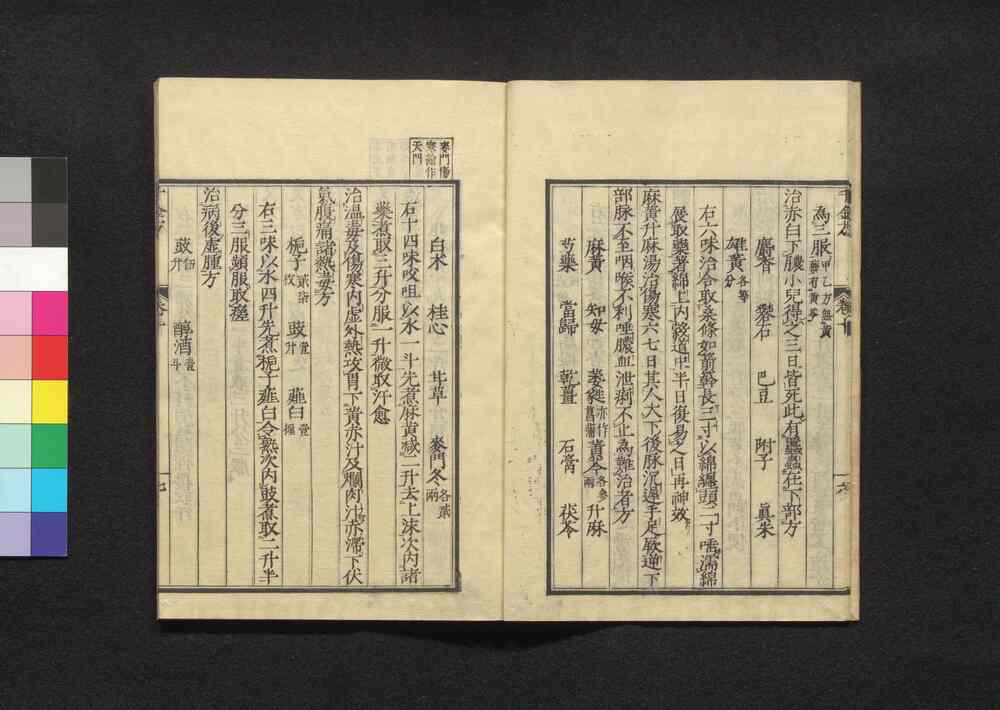 千金方
卷十
十六
為三服甲乙方無黃蘗有黃芩
治赤白下膿小兒得之三日皆死此有䘌蟲在下部方
麝香 礬石 巴豆 附子 真朱
雄黃各等分
右六味治合取桑條如箭簳長三寸以綿纏頭二寸唾濡綿
展取藥著綿上內穀道中半日復易之日再神效
麻黃升麻湯治傷寒六七日其人大下後脉沉遲手足厥逆下
部脉不至咽喉不利唾膿血泄痢不止為難治者方
麻黃 知母 萎蕤亦作菖蒲 黃芩各參兩 升麻
芍藥 當歸 乾薑 石膏 茯苓
白术 桂心 甘草 麥門冬各柒兩
麥門傷寒論作天門
右十四味㕮咀以水一斗先煮麻黃減二升去上沫次內諸
藥煮取三升分服一升微取汗愈
治溫毒及傷寒內虛外熱攻胃下黃赤汁及爛肉汁赤滯下伏
氣腹痛諸熱毒方
梔子貳柒枚 豉壹升 薤白壹握
右三味以水四升先煮梔子薤白令熟次內豉煮取二升半
分三服頻服取瘥
治病後虛腫方
豉伍升 醇酒壹斗
千金方
卷十
十七